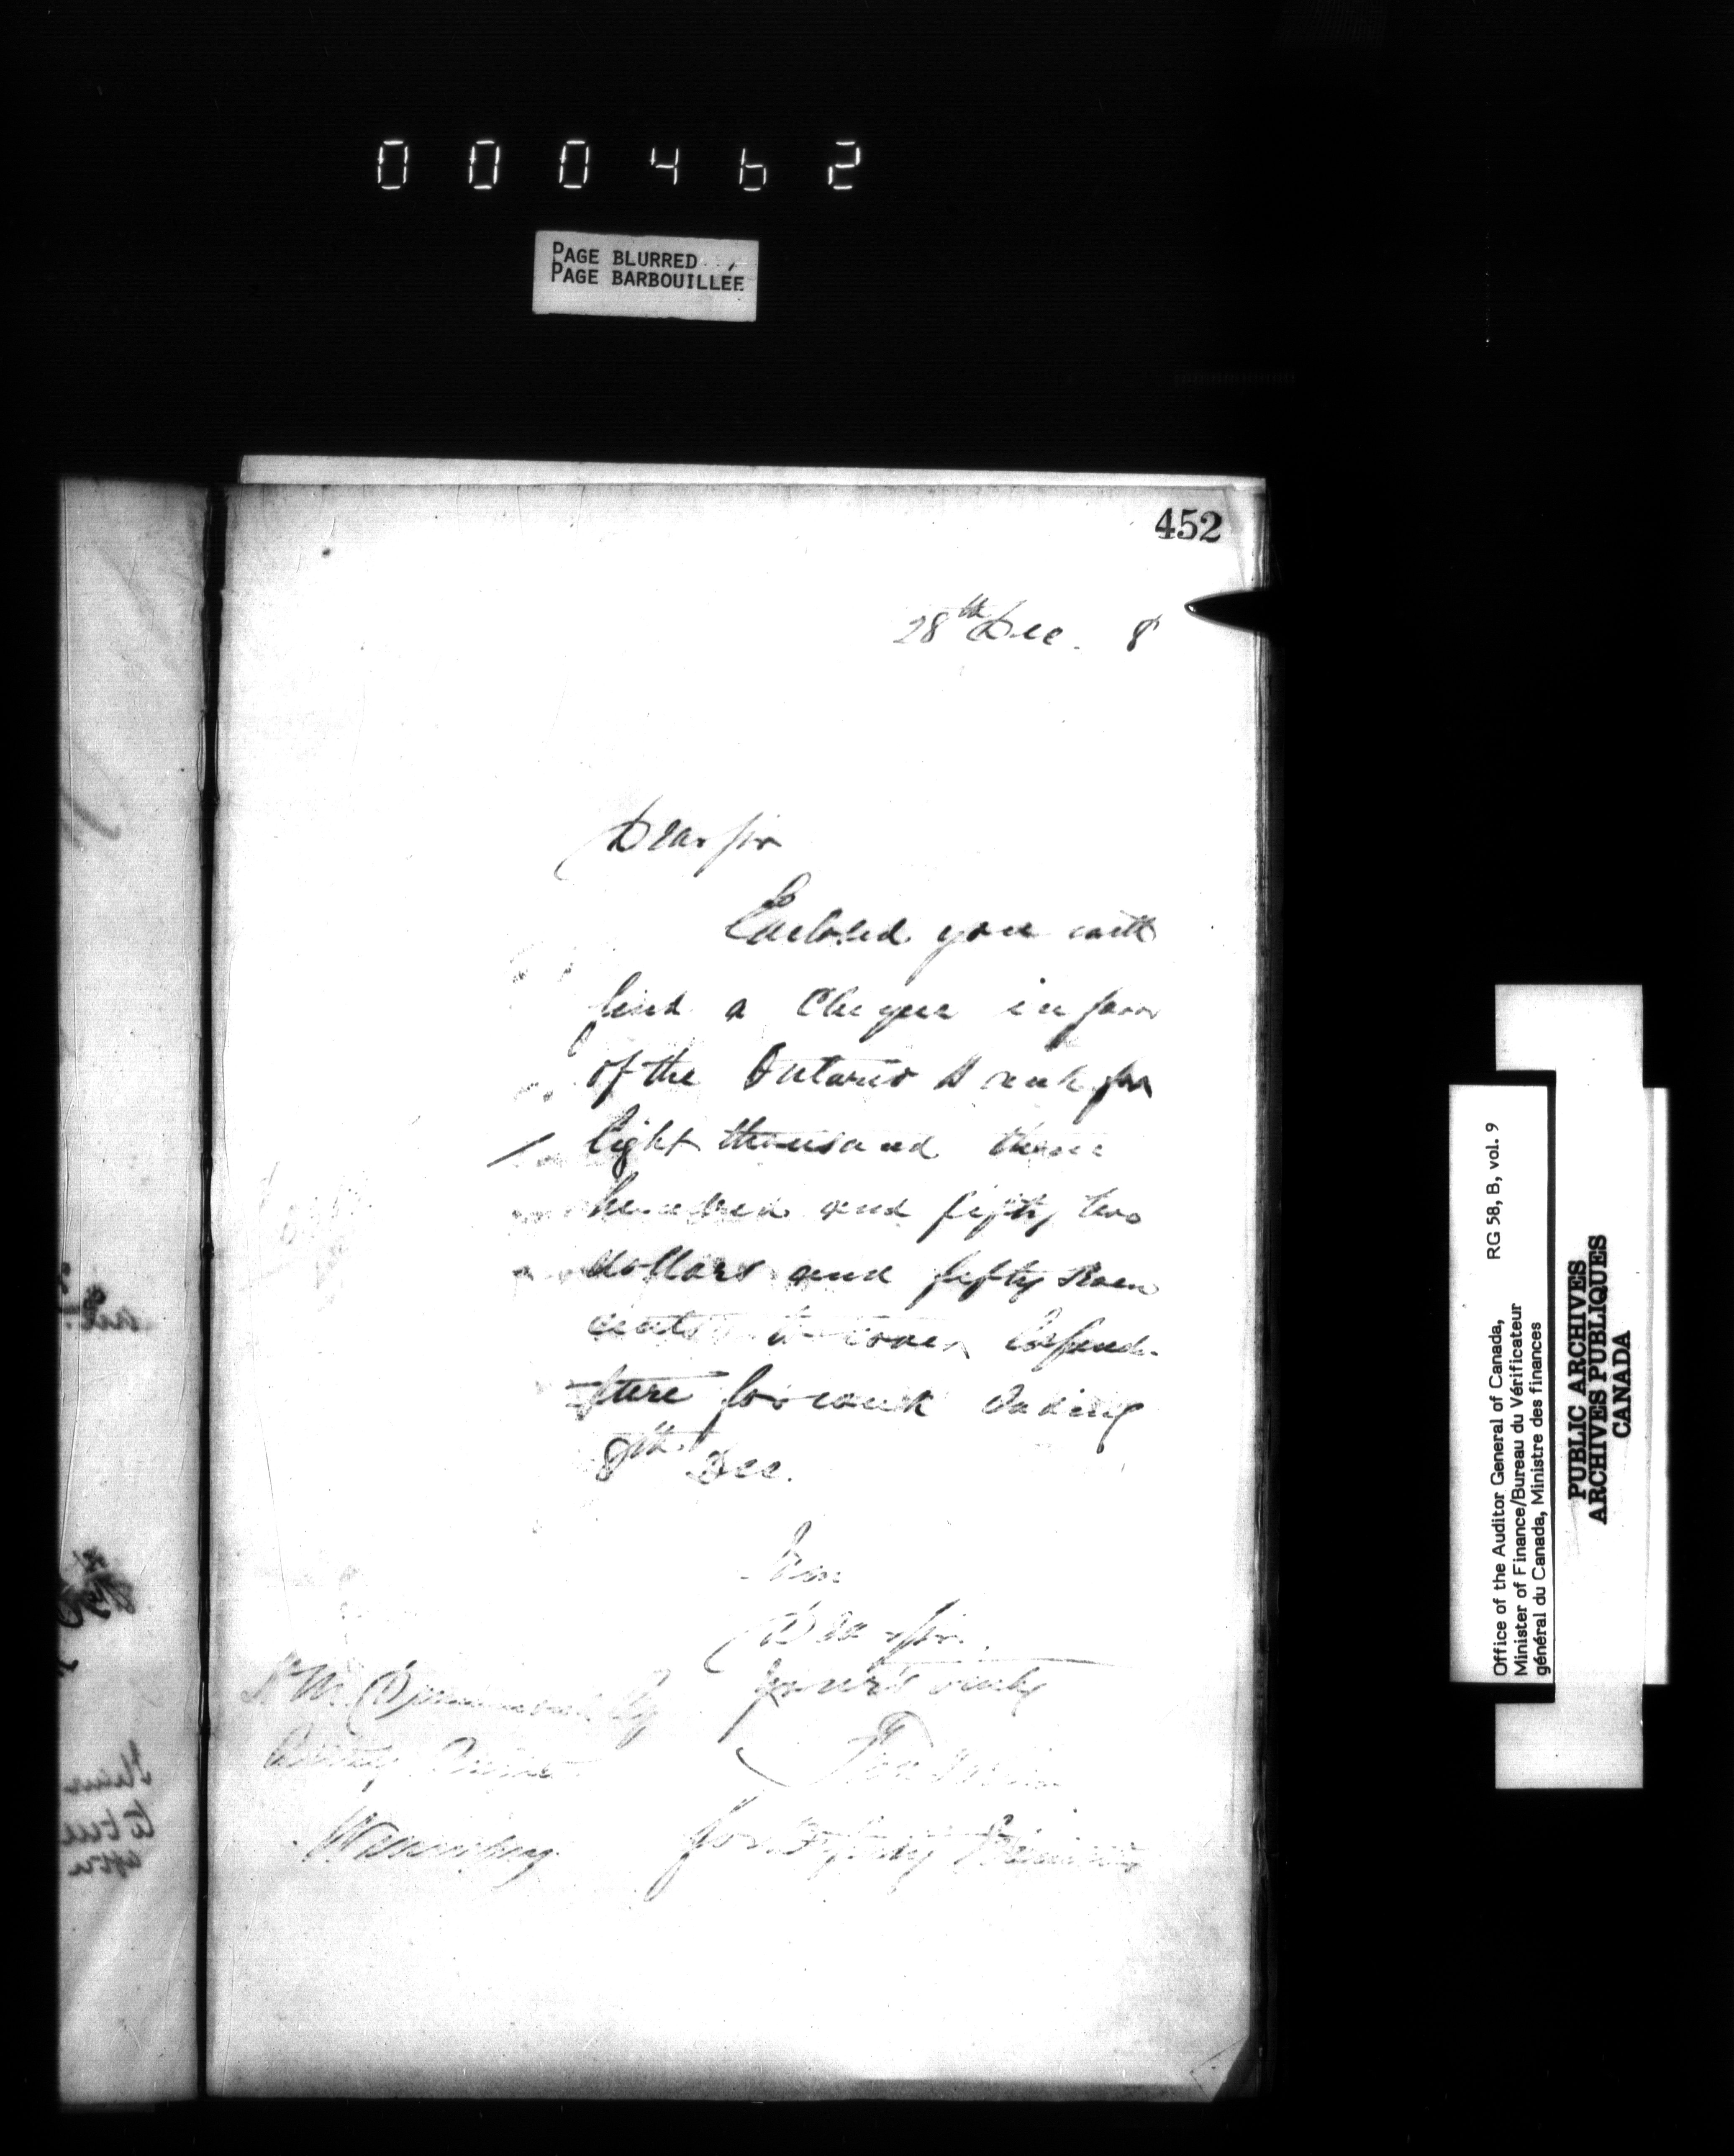 000462
PAGE BLURRED
PAGE BARBOUILLÉE
452
28th Dec. 8
Dear Sir
Enclosed you will
find a Cheque in favor
of the Ontario Bank for
Eight thousand three
hundred and fifty two
dollars and fifty seven
cents to cover Expend-
iture for week Ending
8th Dec.
Dear Sir
Yours truly
for Deputy Minister
Winnipeg
Office of the Auditor General of Canada, RG 58, B, vol. 9
Minister of Finance/Bureau du Vérificateur
général du Canada, Ministre des finances
PUBLIC ARCHIVES
ARCHIVES PUBLIQUES
CANADA